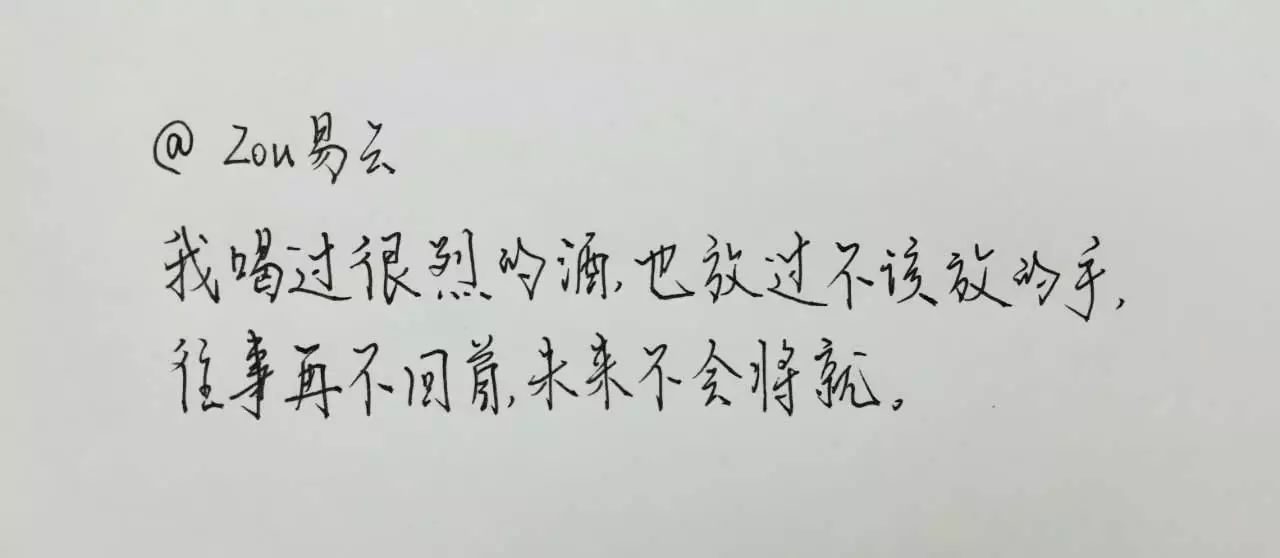 @ Zou易云
我喝过很烈的酒,也放过不该放的手,
往事再不回首,未来不会将就。